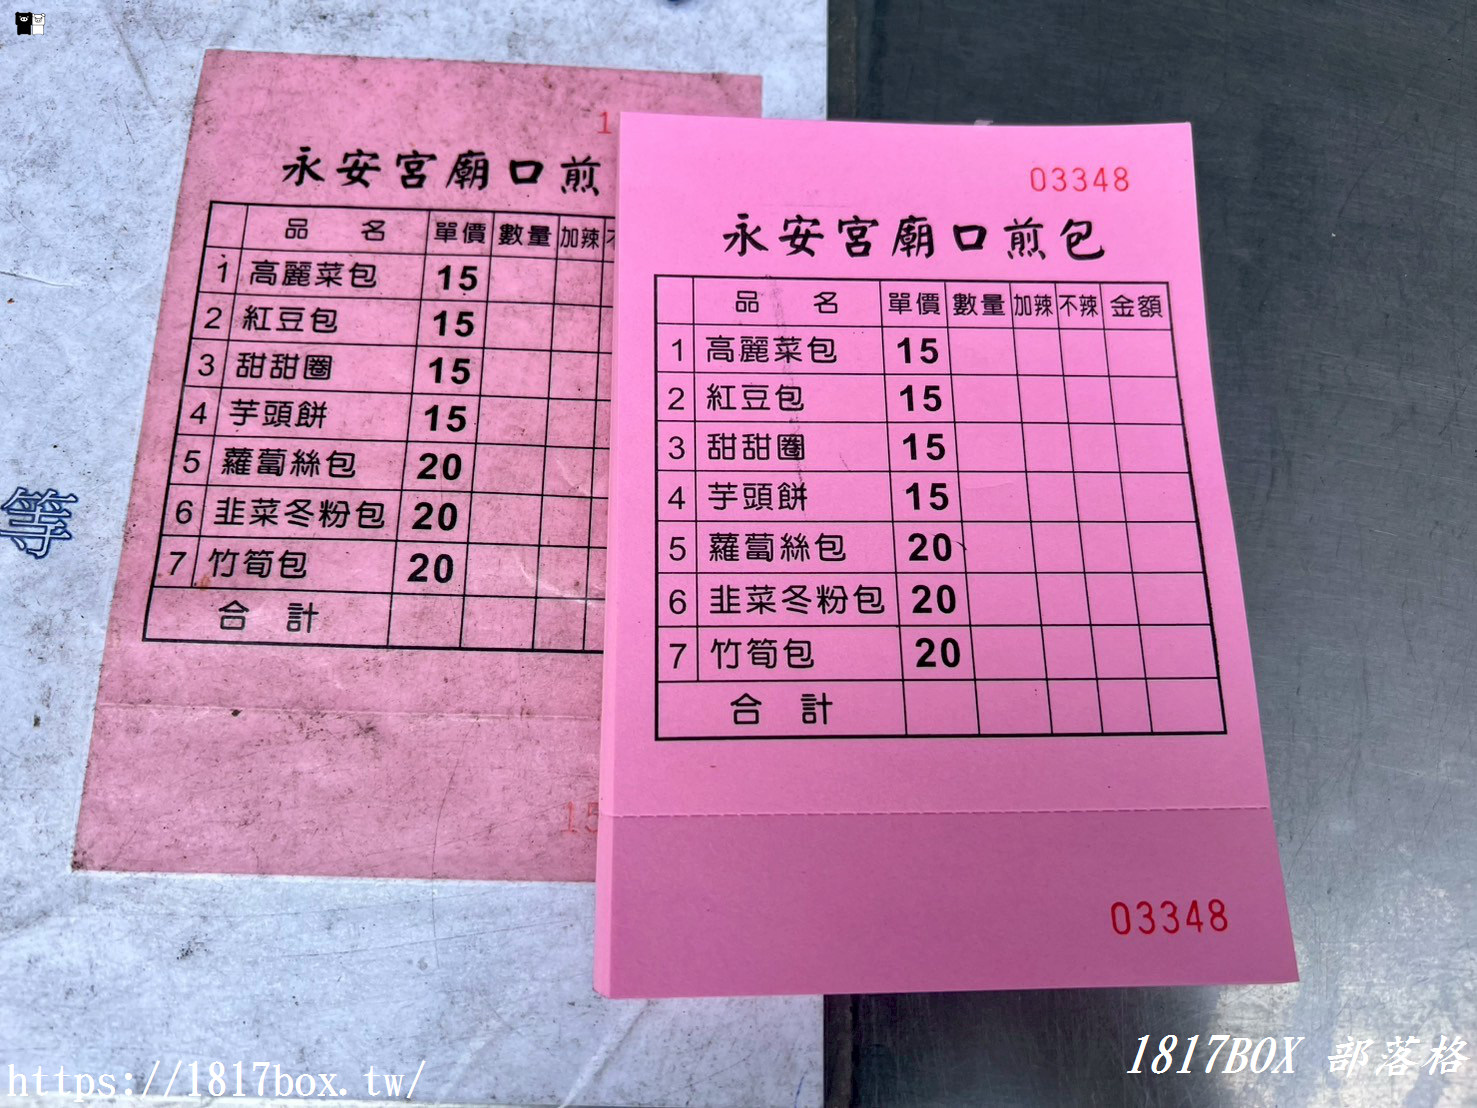 1
永安宮廟口煎
品 名 單價 數量 加辣
1 高麗菜包 15
2 紅豆包 15
3 甜甜圈 15
4 芋頭餅 15
5 蘿蔔絲包 20
6 韭菜冬粉包 20
7 竹筍包 20
合 計
15
等
03348
永安宮廟口煎包
品 名 單價 數量 加辣 不辣 金額
1 高麗菜包 15
2 紅豆包 15
3 甜甜圈 15
4 芋頭餅 15
5 蘿蔔絲包 20
6 韭菜冬粉包 20
7 竹筍包 20
合 計
03348
1817BOX 部落格
https://1817box.tw/